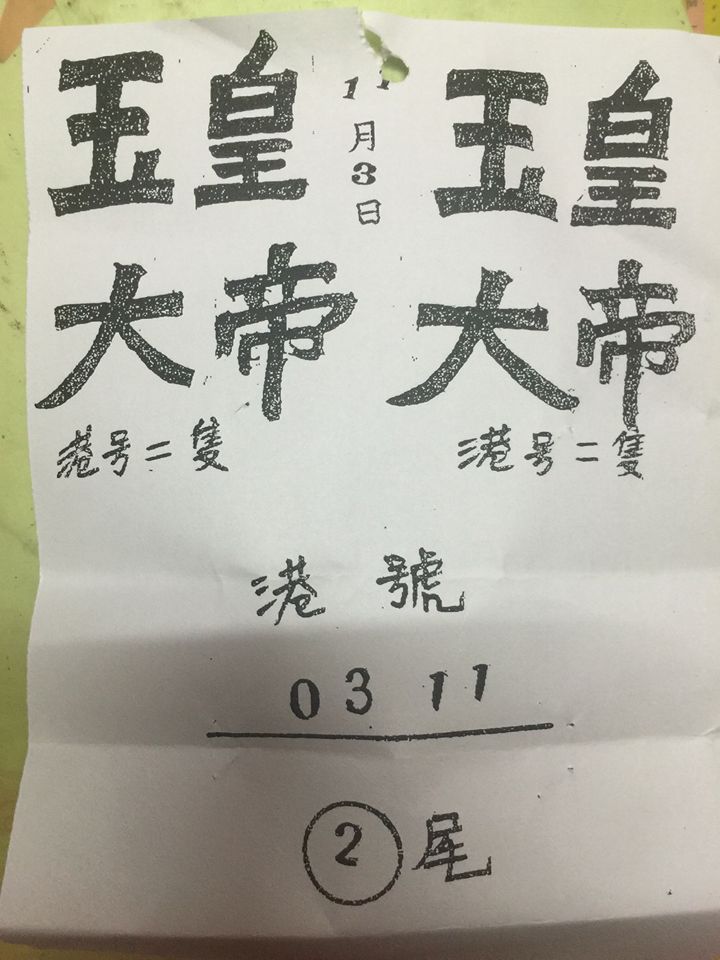 玉皇 11月3日 玉皇
大帝 大帝
港号二隻 港号二隻
港號
03 11
2尾